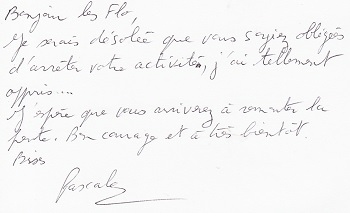 Bonjour les Flo,
Je serais désolée que vous soyiez obligées
d'arrêter votre activité, j'ai tellement
appris....
J'espère que vous arriverez à remonter la
pente. Bon courage et à très bientôt.
Bises
Pascale